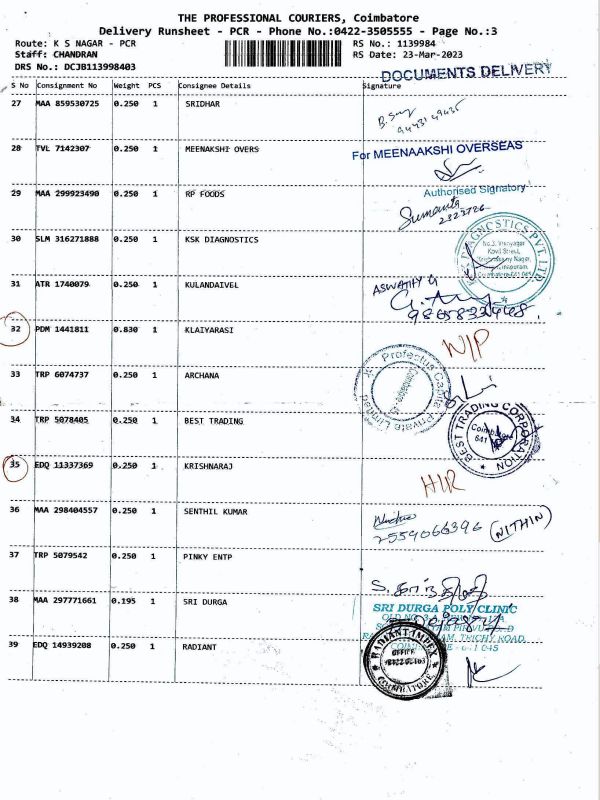 THE PROFESSIONAL COURIERS, Coimbatore
Delivery Runsheet - PCR - Phone No.:0422-3505555 - Page No.:3
Route: K S NAGAR - PCR RS No.: 1139984
Staff: CHANDRAN RS Date: 23-Mar-2023
DRS No.: DCJB113998403
DOCUMENTS DELIVERY
S No Consignment No Weight PCS Consignee Details Signature
27 MAA 859530725 0.250 1 SRIDHAR
28 TVL 7142307 0.250 1 MEENAKSHI OVERS
For MEENAAKSHI OVERSEAS
Authorised Signatory
29 MAA 299923490 0.250 1 RP FOODS
30 SLM 316271888 0.250 1 KSK DIAGNOSTICS
31 ATR 1740079 0.250 1 KULANDAIVEL
ASWATHY G
32 PDM 1441811 0.830 1 KLAIYARASI
N/P
33 TRP 6074737 0.250 1 ARCHANA
Profectus Capital Private Limited
34 TRP 5078405 0.250 1 BEST TRADING
BEST TRADING CORPORATION
Coimbatore
641
35 EDQ 11337369 0.250 1 KRISHNARAJ
36 MAA 298404557 0.250 1 SENTHIL KUMAR
2559066396 (NITHIN)
37 TRP 5079542 0.250 1 PINKY ENTP
38 MAA 297771661 0.195 1 SRI DURGA
SRI DURGA POLY CLINIC
39 EDQ 14939208 0.250 1 RADIANT
RADIANT IMPEX
OFFICE
COIMBATORE